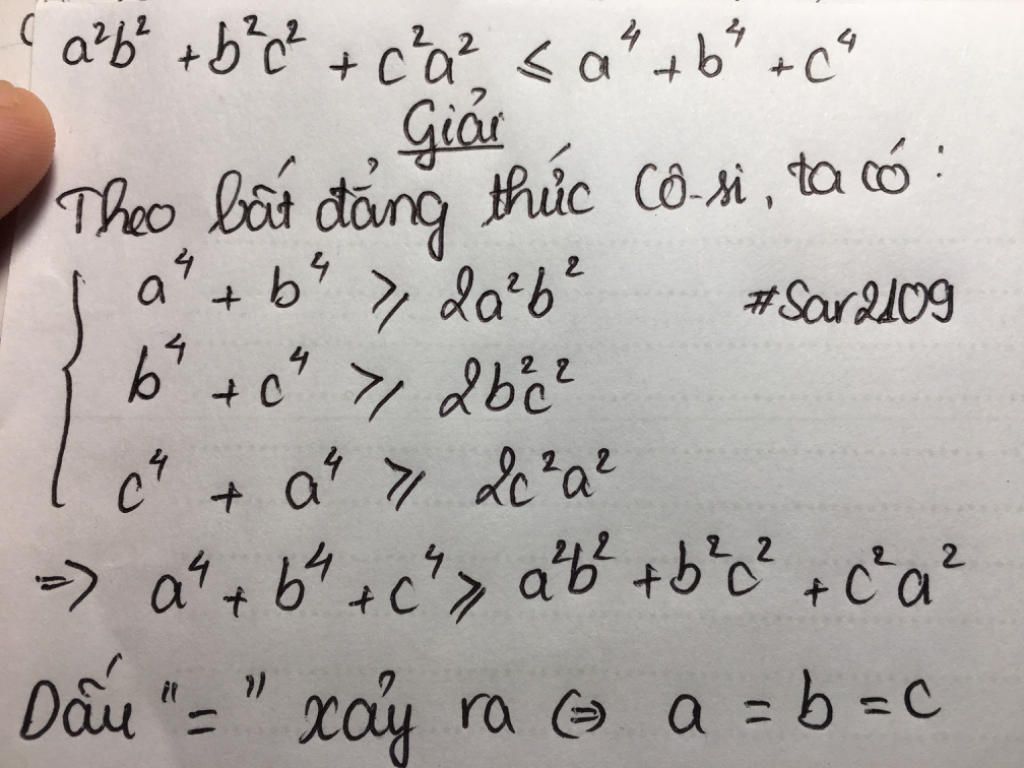 a²b² + b²c² + c²a² ⩽ a⁴ + b⁴ + c⁴
Giải
Theo bất đẳng thức Cô-si, ta có:
a⁴ + b⁴ ⩾ 2a²b²
#Sar2109
b⁴ + c⁴ ⩾ 2b²c²
c⁴ + a⁴ ⩾ 2c²a²
=> a⁴ + b⁴ + c⁴ ⩾ a²b² + b²c² + c²a²
Dấu "=" xảy ra <=> a = b = c